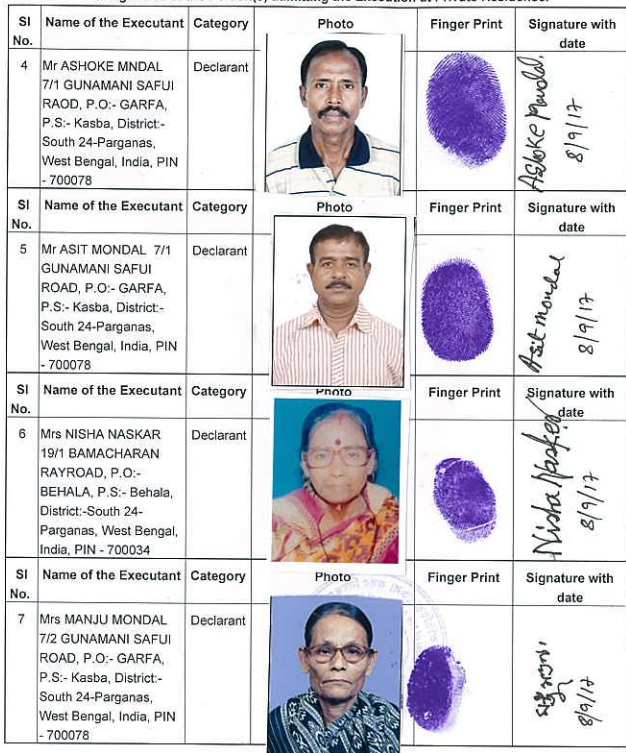 Sl No. Name of the Executant Category Photo Finger Print Signature with date
4 Mr ASHOKE MNDAL Declarant
7/1 GUNAMANI SAFUI
RAOD, P.O:- GARFA,
P.S:- Kasba, District:-
South 24-Parganas,
West Bengal, India, PIN
- 700078
Ashoke Mondal.
8/9/17
Sl No. Name of the Executant Category Photo Finger Print Signature with date
5 Mr ASIT MONDAL 7/1 Declarant
GUNAMANI SAFUI
ROAD, P.O:- GARFA,
P.S:- Kasba, District:-
South 24-Parganas,
West Bengal, India, PIN
- 700078
Asit mondal
8/9/17
Sl No. Name of the Executant Category Photo Finger Print Signature with date
6 Mrs NISHA NASKAR Declarant
19/1 BAMACHARAN
RAYROAD, P.O:-
BEHALA, P.S:- Behala,
District:-South 24-
Parganas, West Bengal,
India, PIN - 700034
Nisha Naskar
8/9/17
Sl No. Name of the Executant Category Photo Finger Print Signature with date
7 Mrs MANJU MONDAL Declarant
7/2 GUNAMANI SAFUI
ROAD, P.O:- GARFA,
P.S:- Kasba, District:-
South 24-Parganas,
West Bengal, India, PIN
- 700078
8/9/17